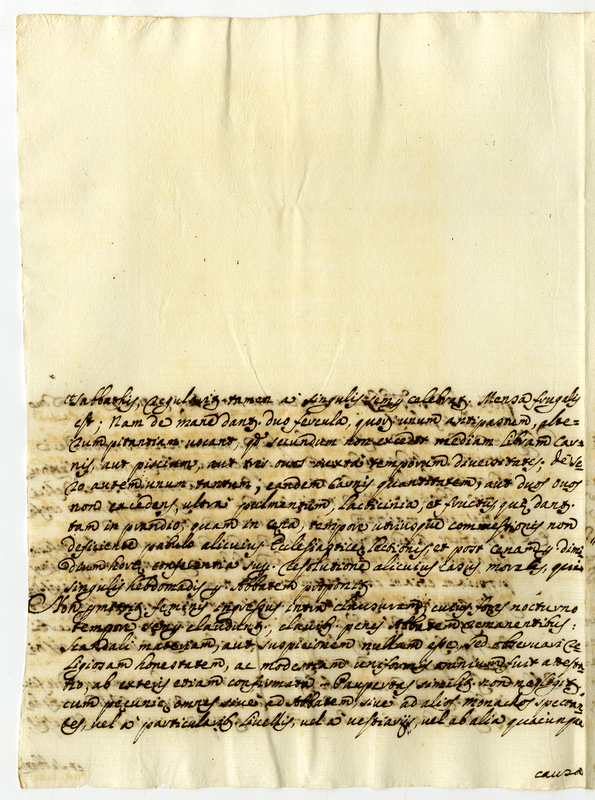 et sabbathis, regulariter tamen a singulis semper celebratur. Mensa frugalis
est; Nam de mane dantur duo fercula, quorum unum antipastum, alte-
rum pitantiam vocant, quod secundum non excedit mediam libram car-
nis, aut piscium, aut tria ova juxta temporum diversitates: de se-
ro autem unum tantum; eandem carnis quantitatem, aut duos ovos
non excedens, ultra pulmentum, lacticinia, et fructus qui dantur
tam in prandio, quam in cena, tempore utriusque commestionis non
deficiente pabulo alicuius Ecclesiasticae lectionis, et post cenam per dimi-
dium horae conferentia super resolutione alicuius casus moralis, qui
singulis hebdomadis per Abbatem proponitur
Non permittitur feminis ingressus intra clausuram, cuius fores nocturno
tempore semper clauduntur, clavibus penes Abbatem remanentibus:
scandali materiam, aut suspicionem nullam esse, sed observari re-
ligiosam honestatem, ac modestiam uniformis omnium fuit attesta-
tio, ab exteris etiam confirmata. Paupertas similiter non negligitur
cum pecuniae omnes sive ad Abbatem, sive ad alios monachos spectan-
tes, vel a particularibus livellis, vel a vestiariis, vel ab alia quacunque
causa